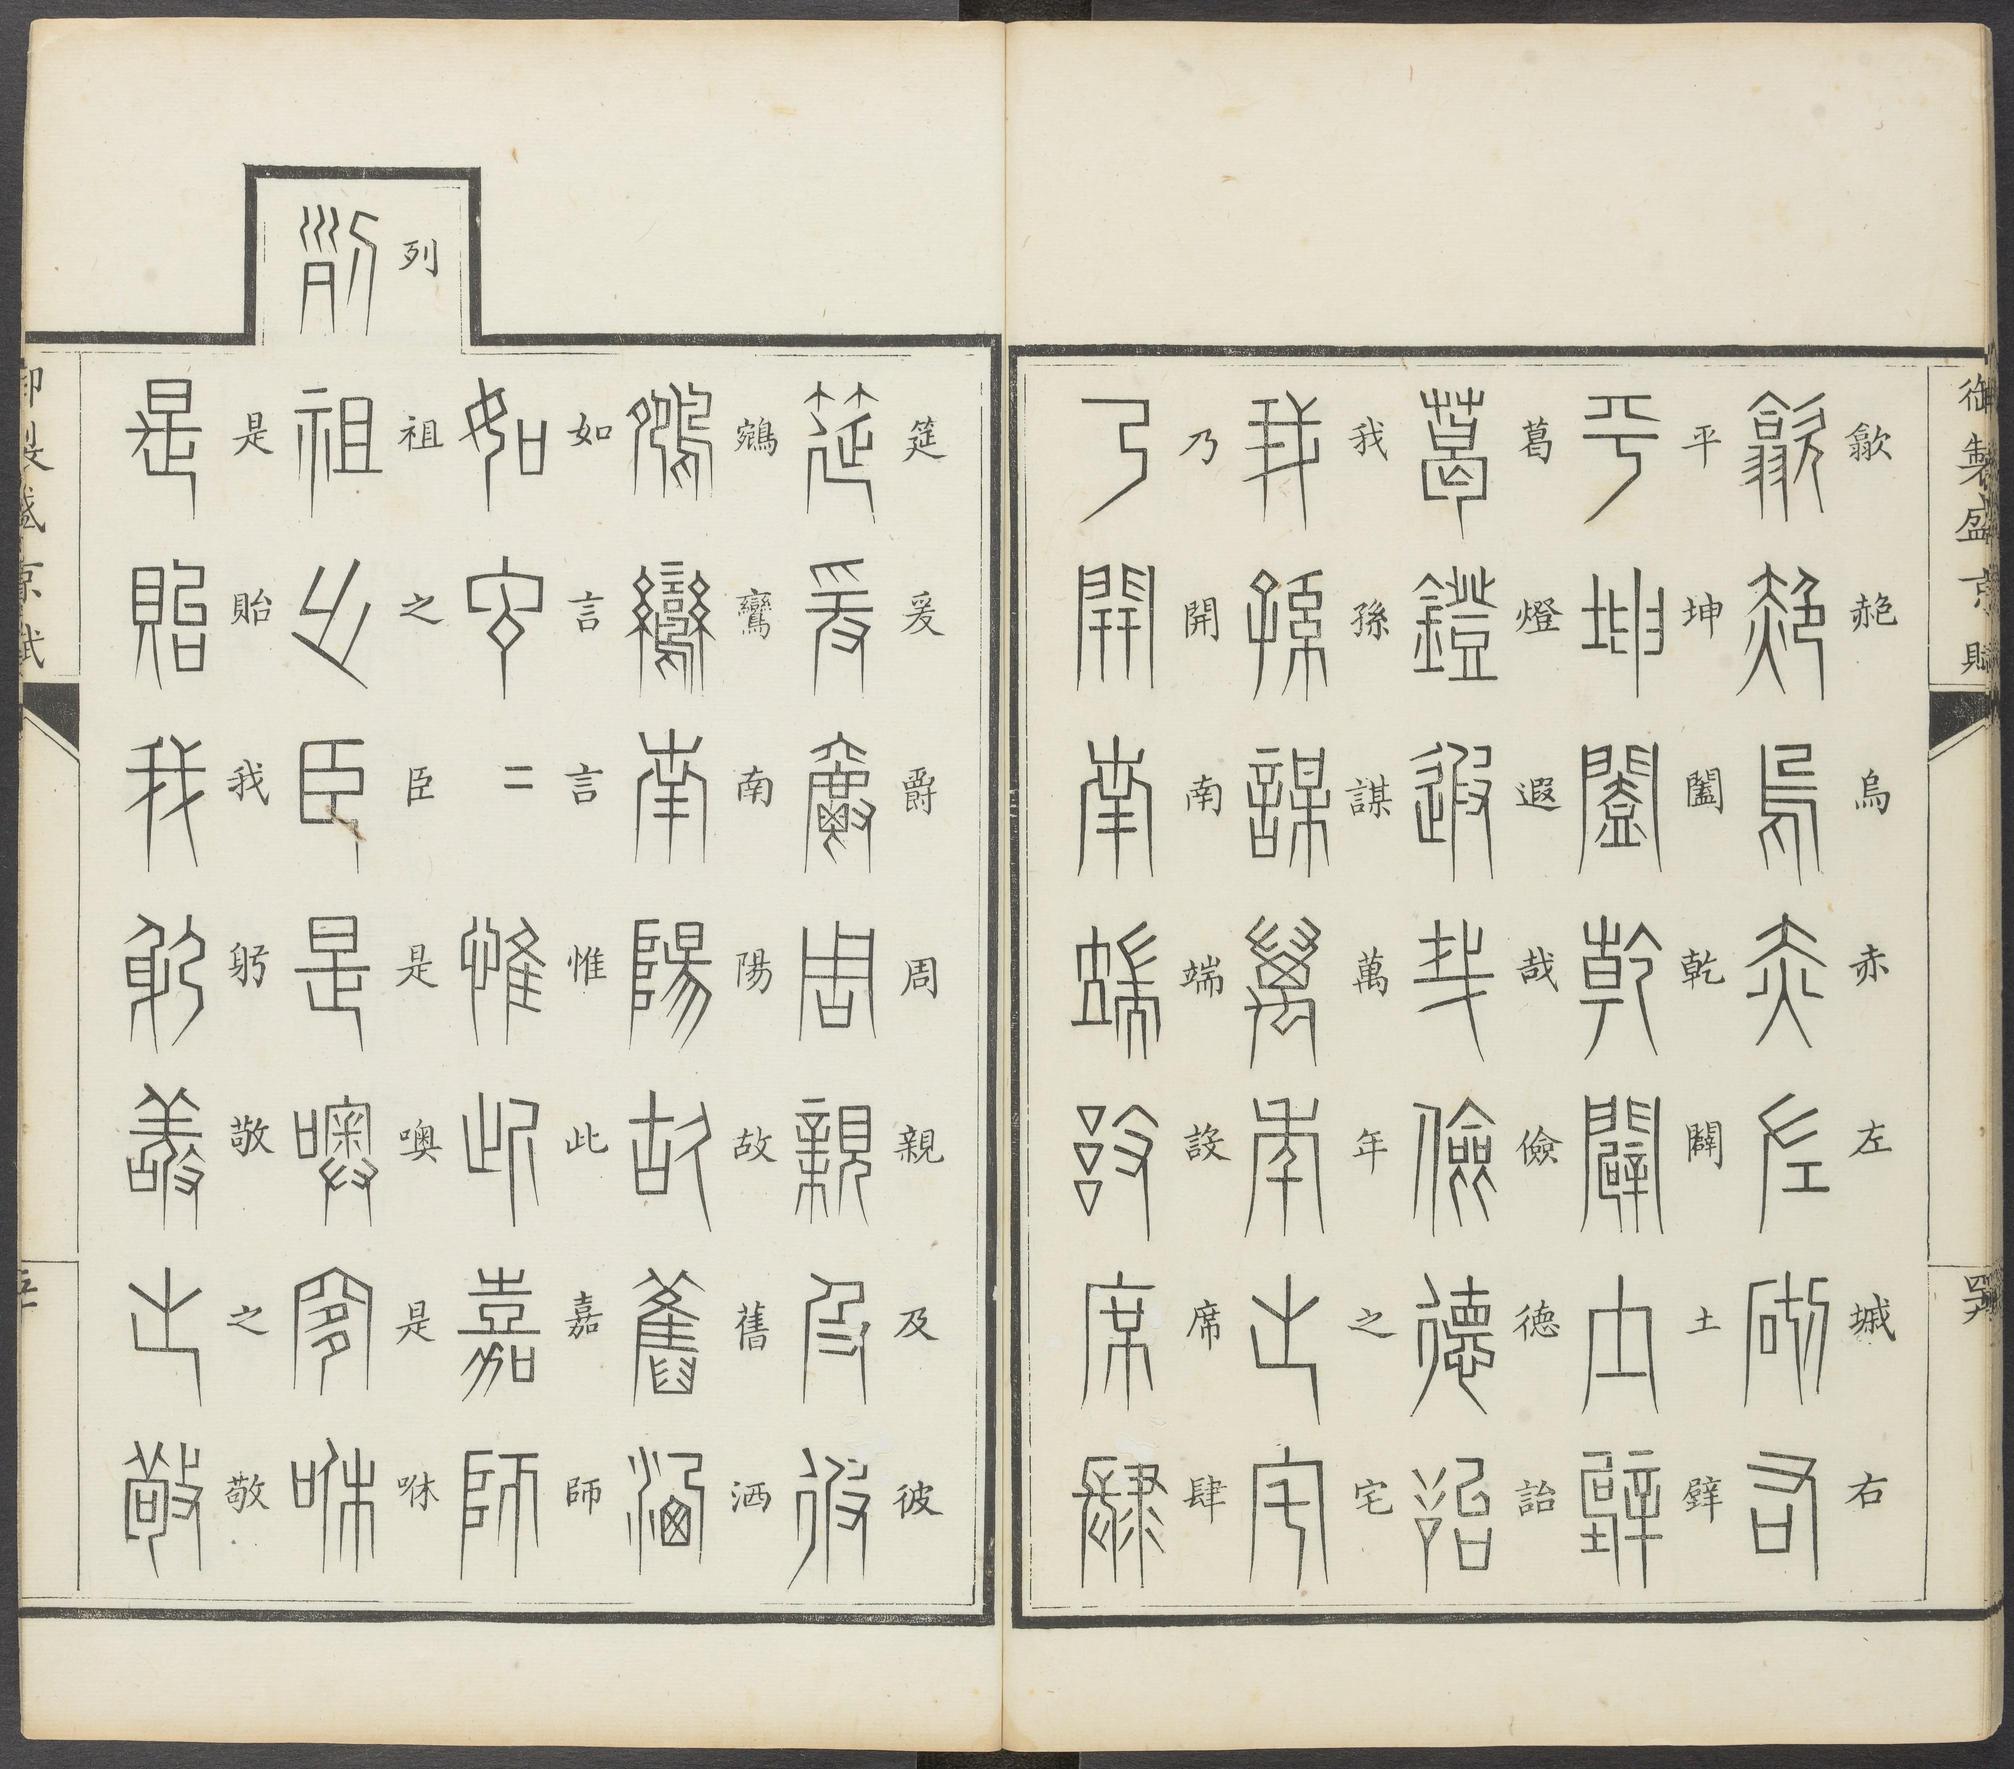 御製盛京賦
歙赩烏赤左墄右
平坤闔乾闢土壁
葛燈遐哉儉德詒
我孫謀萬年之宅
乃開南端設席肆
筵爰爵周親及彼
鵷鸞南陽故舊洒
如言言惟此嘉師
列祖之臣是噢是咻
是貽我躬敬之敬
御製盛京賦